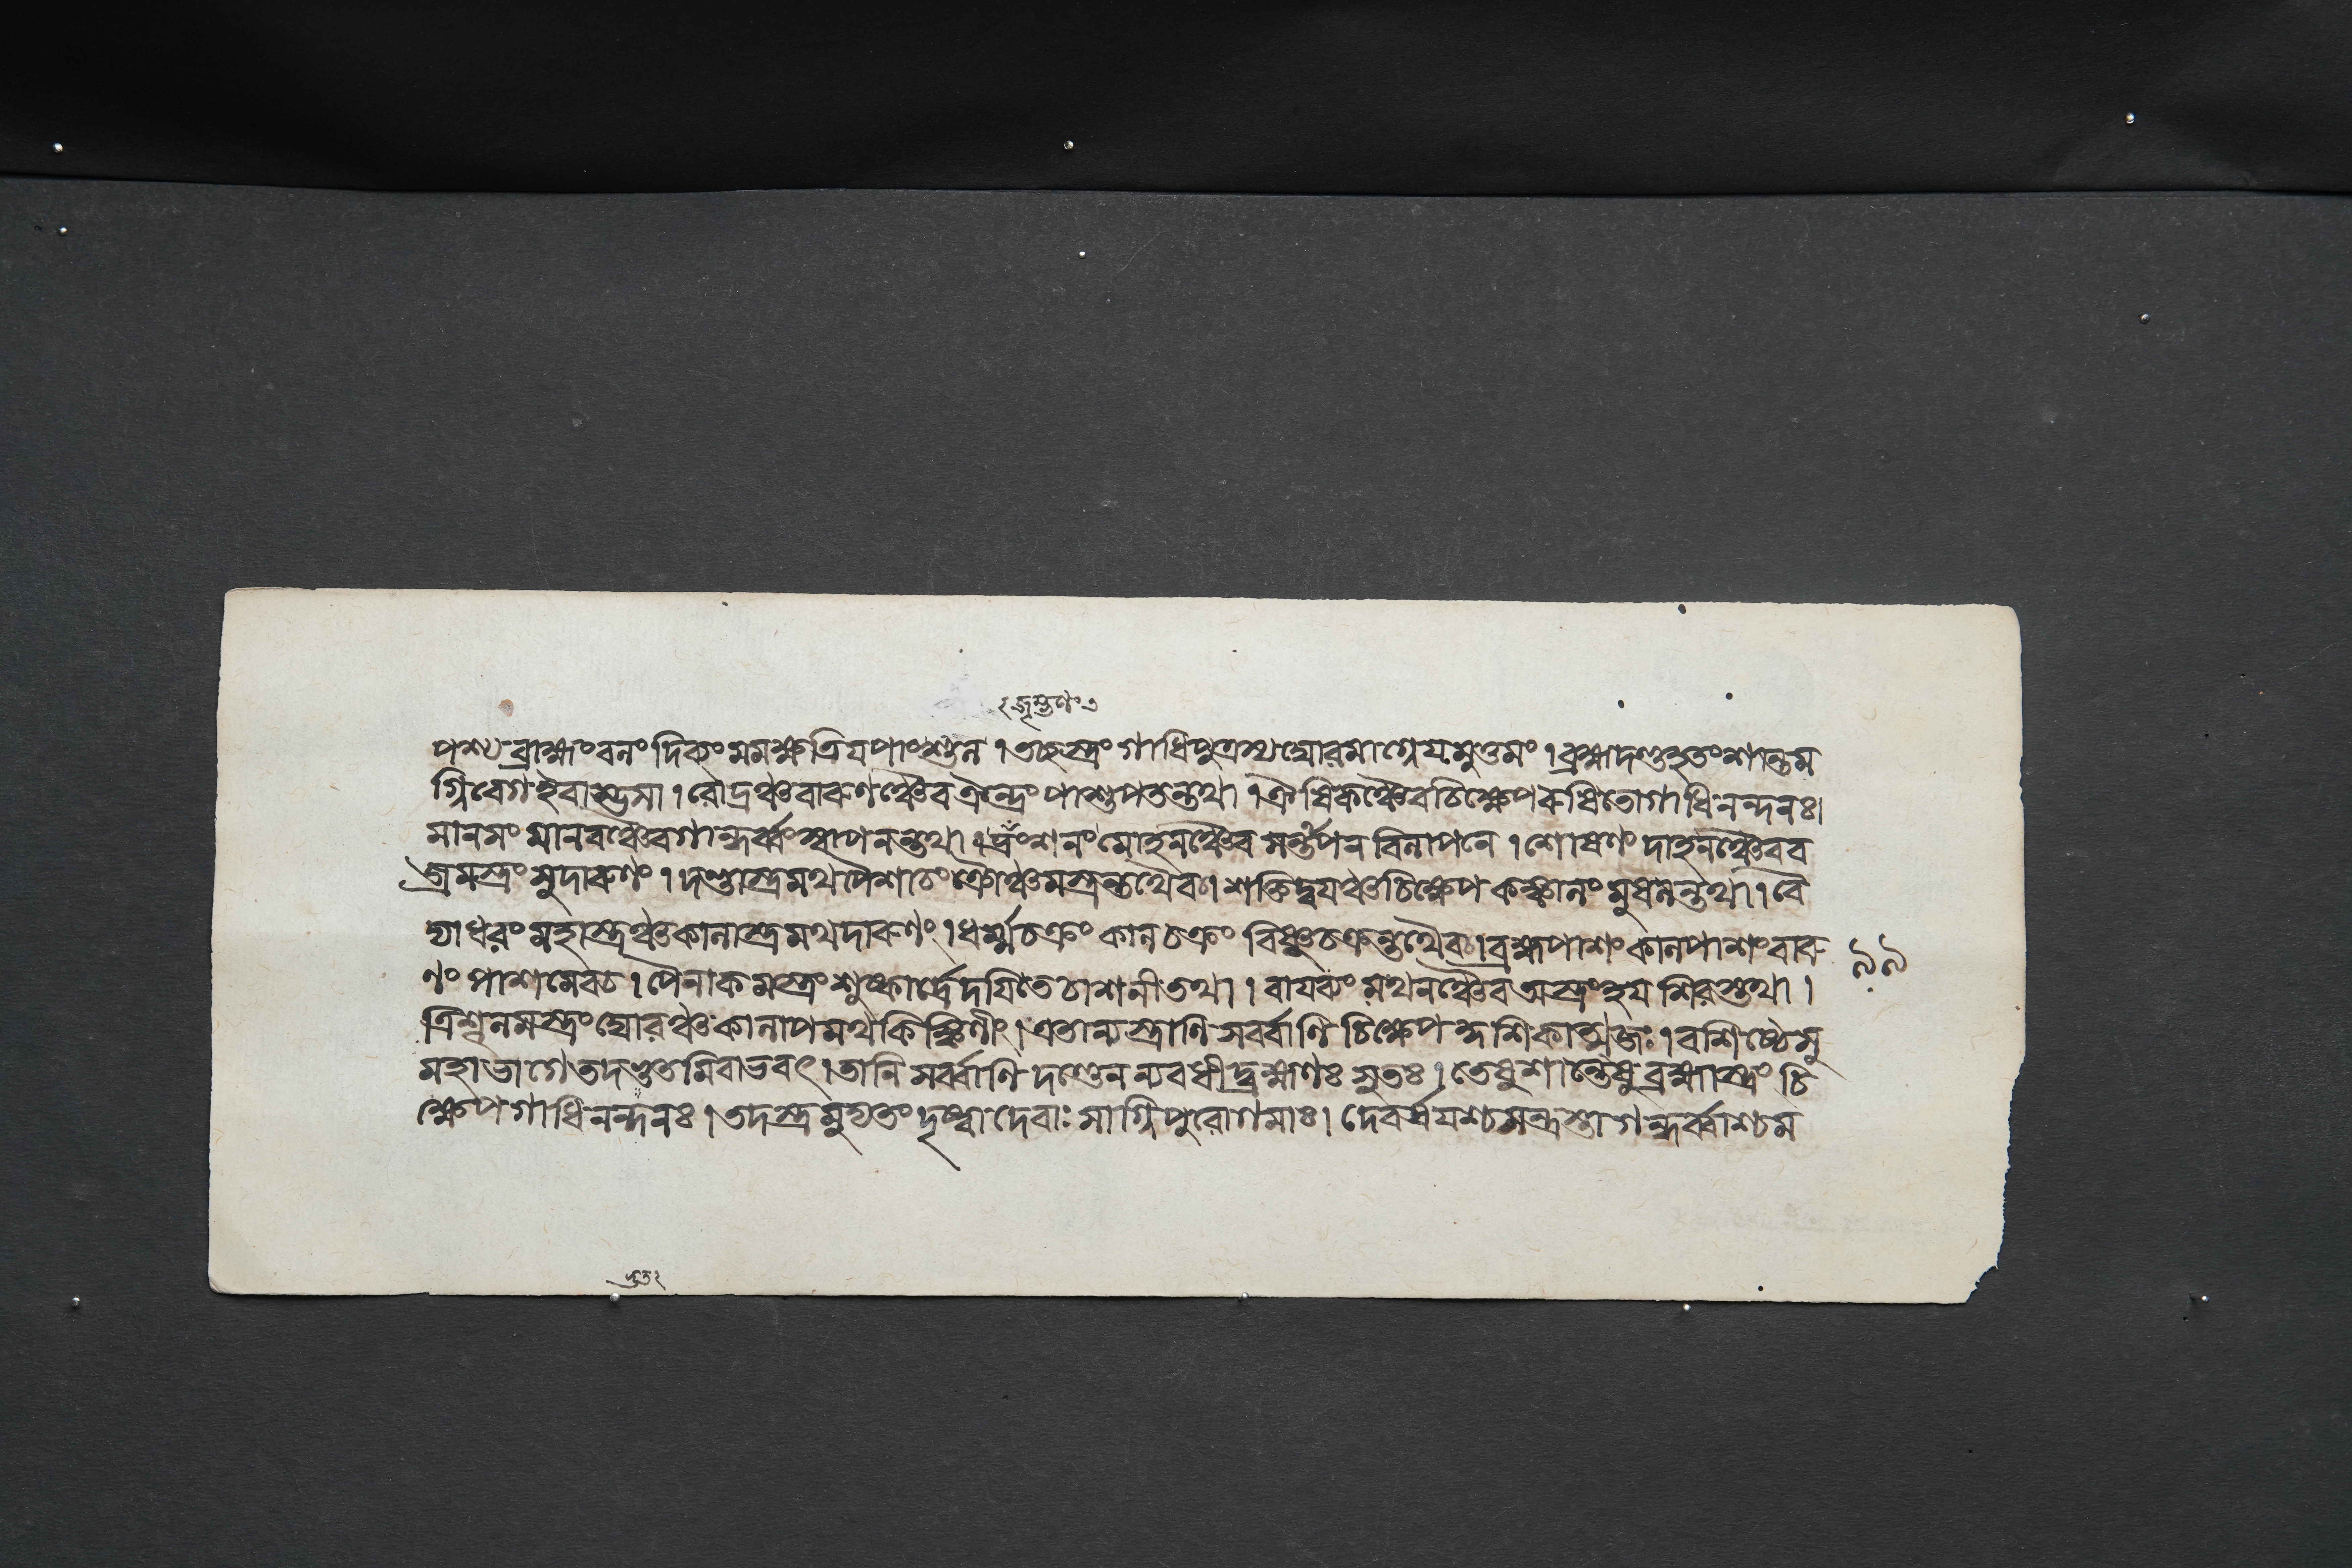 ২ জৃম্ভণং ৩
পশ্য ব্রাহ্মং বলং দিব্যং মমক্ষত্রিয়পাংশুল । তচ্ছস্ত্রং গাধিপুত্রস্য ঘোরমাগ্নেয়মুত্তমং । ব্রহ্মদণ্ডহতং শান্তম
গ্নিবেগ ইবাম্ভসা । রৌদ্রঞ্চ বারুণঞ্চৈব ঐন্দ্রং পাশুপতন্তথা । ঐষিকঞ্চৈব চিক্ষেপ রুষিতো গাধিনন্দনঃ।
মানসং মানবঞ্চৈব গান্ধর্ব্বং স্বাপনন্তথা । ভ্রংশনং মোহনঞ্চৈব সন্তাপন বিলাপনে । শোষণং দাহনঞ্চৈব ব
জ্রমস্ত্রং সুদারুণং । দণ্ডাস্ত্রমথ পৈশাচং ক্রৌঞ্চমস্ত্রন্তথৈবচ । শক্তিদ্বয়ঞ্চ চিক্ষেপ কঙ্কালং মুষলন্তথা । বৈ
দ্যাধরং মহাস্ত্রঞ্চ কালাস্ত্রমথ দারুণং । ধর্ম্মচক্রং কালচক্রং বিষ্ণুচক্রন্তথৈবচ । ব্রহ্মপাশং কালপাশং বারু
ণং পাশমেবচ । পৈনাকমস্ত্রং শুষ্কার্দ্রে দয়িতে চাশনী তথা । বায়ব্যং মথনঞ্চৈব অস্ত্রং হয়শিরস্তথা ।
ত্রিশূলমস্ত্রং ঘোরঞ্চ কালাপমথ কিঙ্কিণীং । এতান্যস্ত্রাণি সর্ব্বাণি চিক্ষেপ কুশিকাত্মজঃ । বশিষ্ঠে সু
মহাভাগে তদদ্ভুতমিবাভবৎ । তানি সর্ব্বাণি দণ্ডেন ন্যবধীদ্ব্রহ্মণঃ সুতঃ । তেষু শান্তেষু ব্রহ্মাস্ত্রং চি
ক্ষেপ গাধিনন্দনঃ । তদস্ত্রমুদ্যতং দৃষ্ট্বা দেবাঃ সাগ্নিপুরোগমাঃ। দেবর্ষয়শ্চ সন্ত্রস্তা গন্ধর্ব্বাশ্চ ম
৯৯